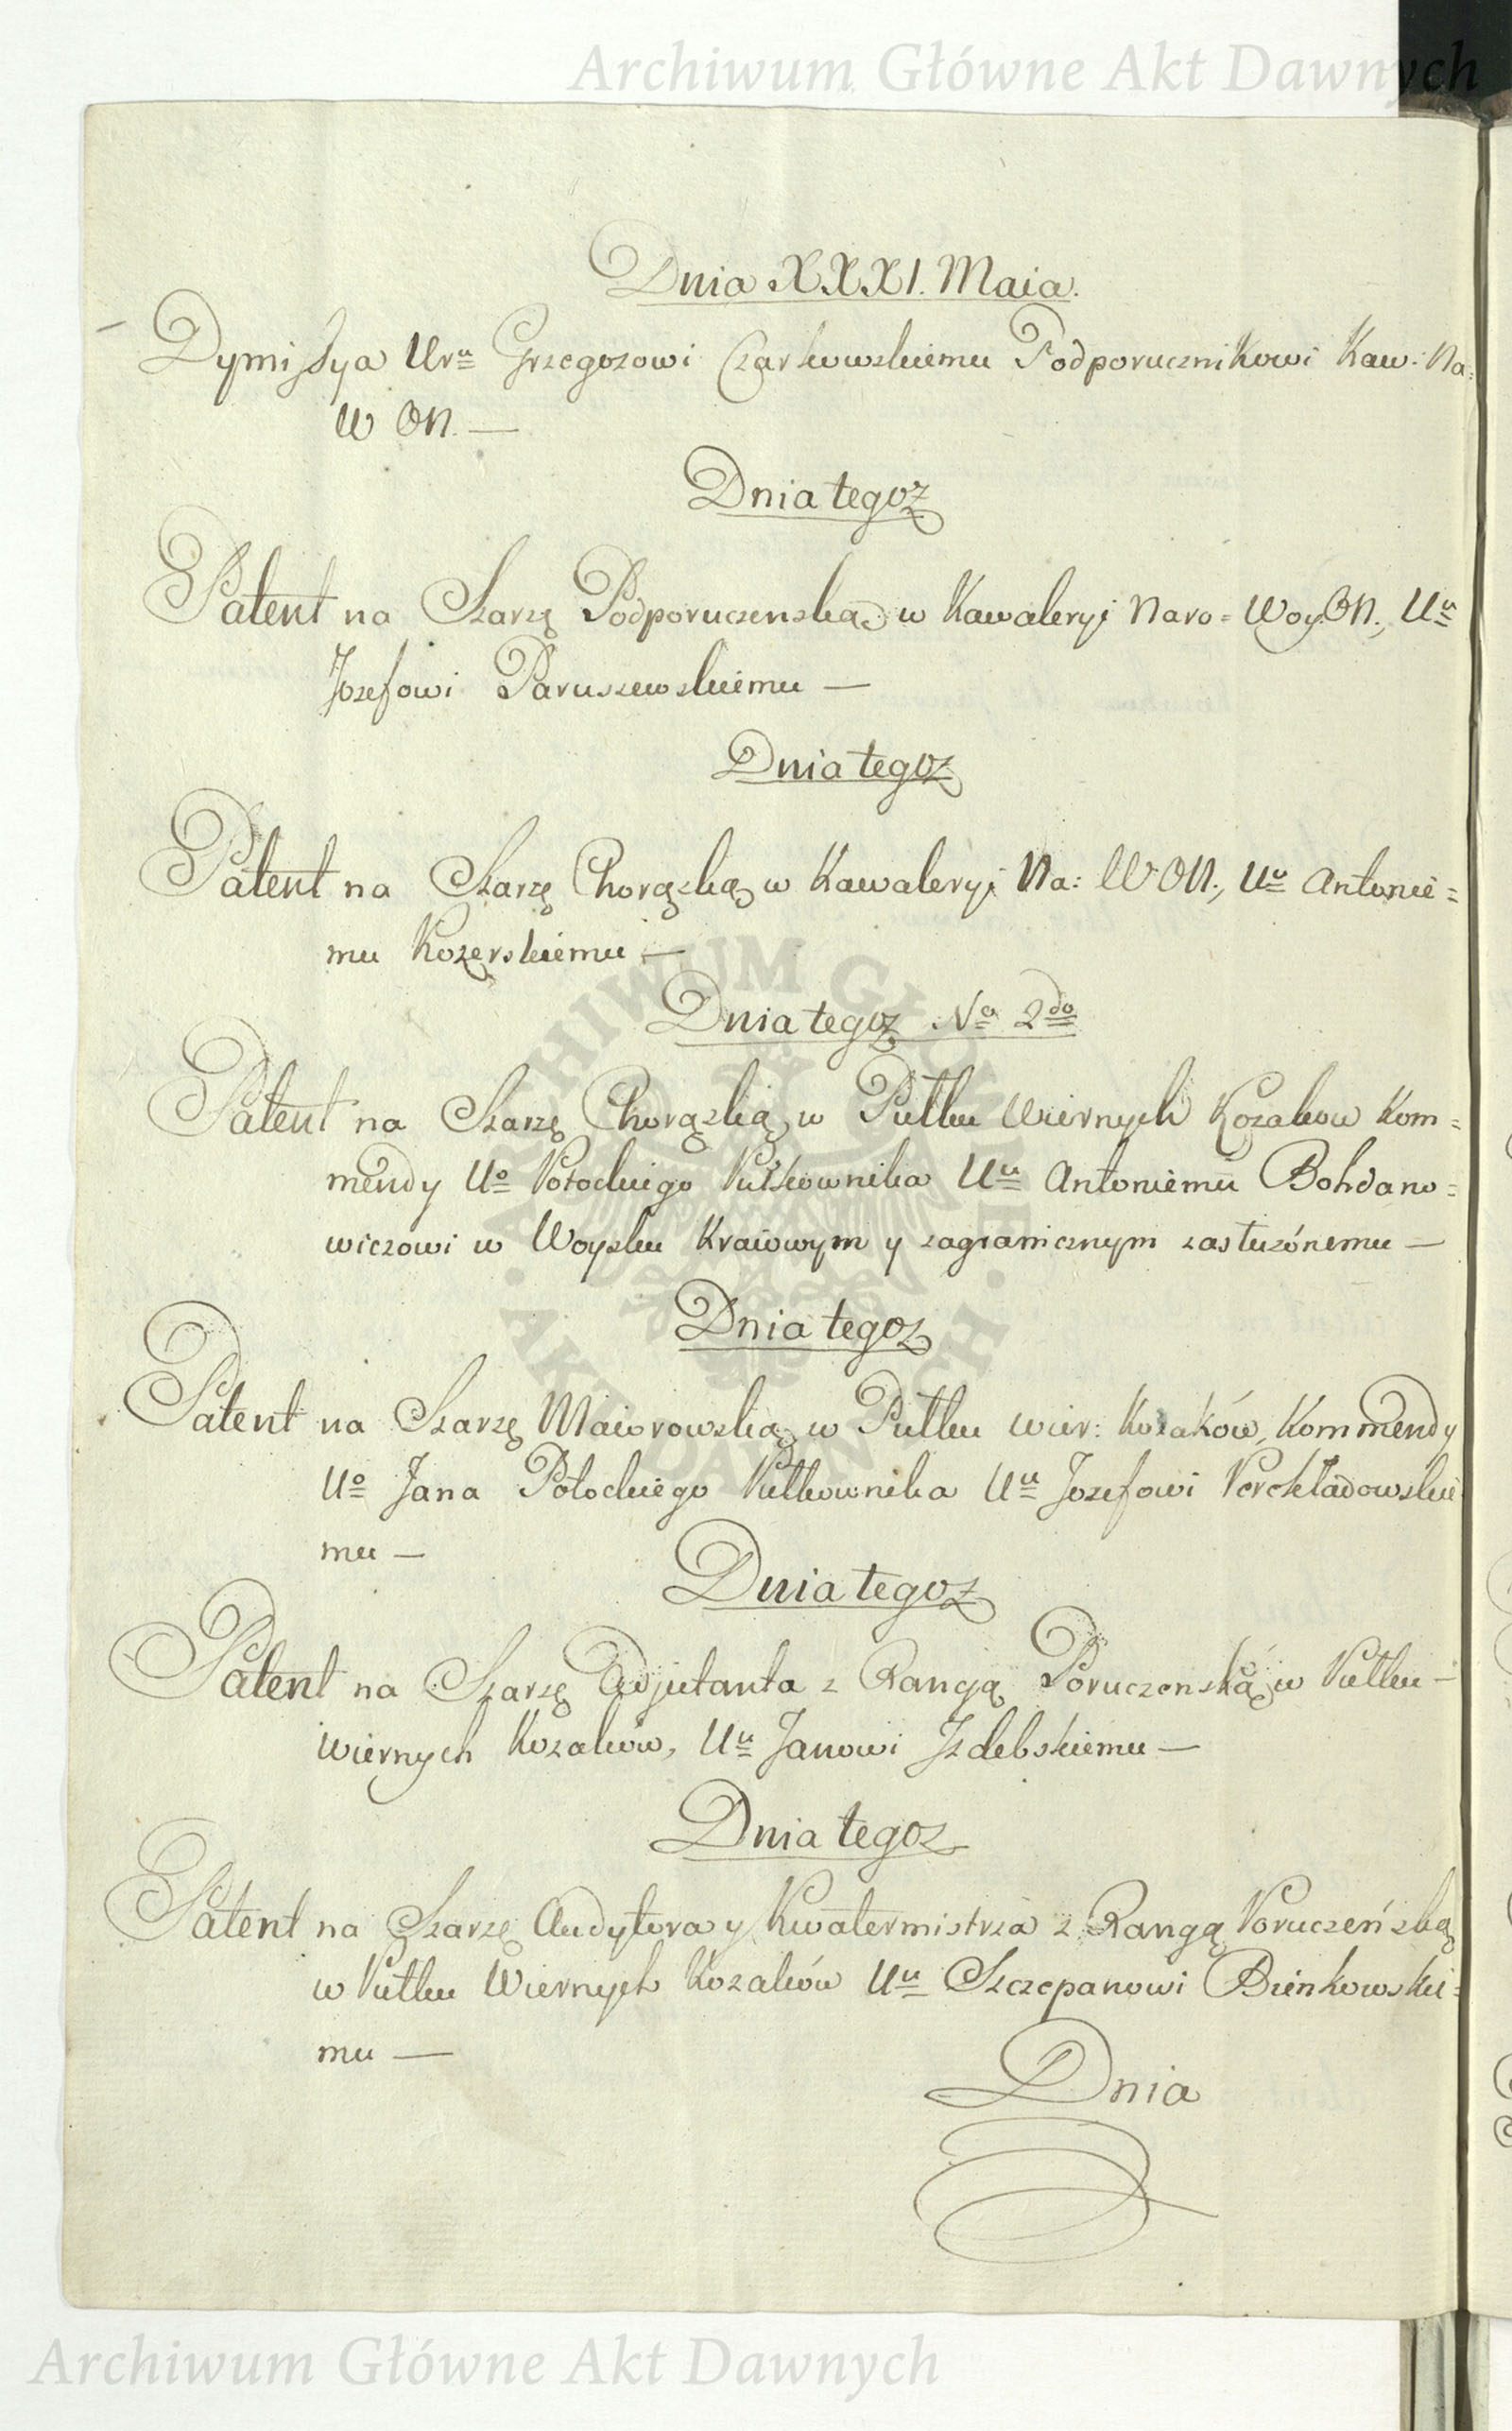 Archiwum Główne Akt Dawnych
Dnia XXXI. Maia.
Dymissya Uru Grzegozowi Czarkowskiemu Podporucznikowi Kaw: Na=
W ON. —
Dnia tegoż
Patent na Szarzę Podporuczenską w Kawaleryi Naro= Woy. ON., Uu
Jozefowi Paruszewskiemu —
Dnia tegoz
Patent na Szarzę Chorązką w Kawaleryi Na: W ON., Uu Antonie=
mu Kozerskiemu —
Dnia tegoz No 2do
Patent na Szarzę Chorązką w Pułku Wiernych Kozakow Kom=
mendy Uo Potockiego Pułkownika Uu Antoniemu Bohdano=
wiczowi w Woysku Kraiowym y zagranicznym zasłużonemu —
Dnia tegoz
Patent na Szarzę Maiorowską w Pułku Wier: Kozaków, Kommendy
Uo Jana Potockiego Pułkownika Uu Jozefowi Perekładowskie
mu —
Dnia tegoz
Patent na Szarzę Adjutanta z Rangą Poruczenską w Pułku —
Wiernych Kozaków, Uu Janowi Jzdebskiemu —
Dnia tegoz
Patent na Szarzę Audytora y Kwatermistrza z Rangą Poruczeńską
w Pułku Wiernych Kozaków Uu Szczepanowi Bienkowskie=
mu —
Dnia
ARCHIWUM GŁÓWNE · AKT DAWNYCH ·
Archiwum Główne Akt Dawnych